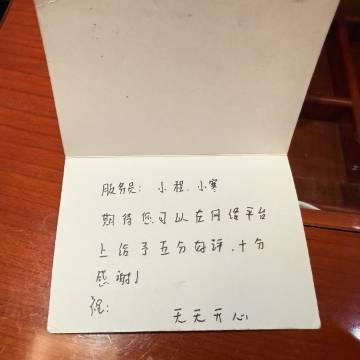 服务员：小程、小寒
期待您可以在网络平台
上给予五分好评，十分
感谢！
祝：
天天开心